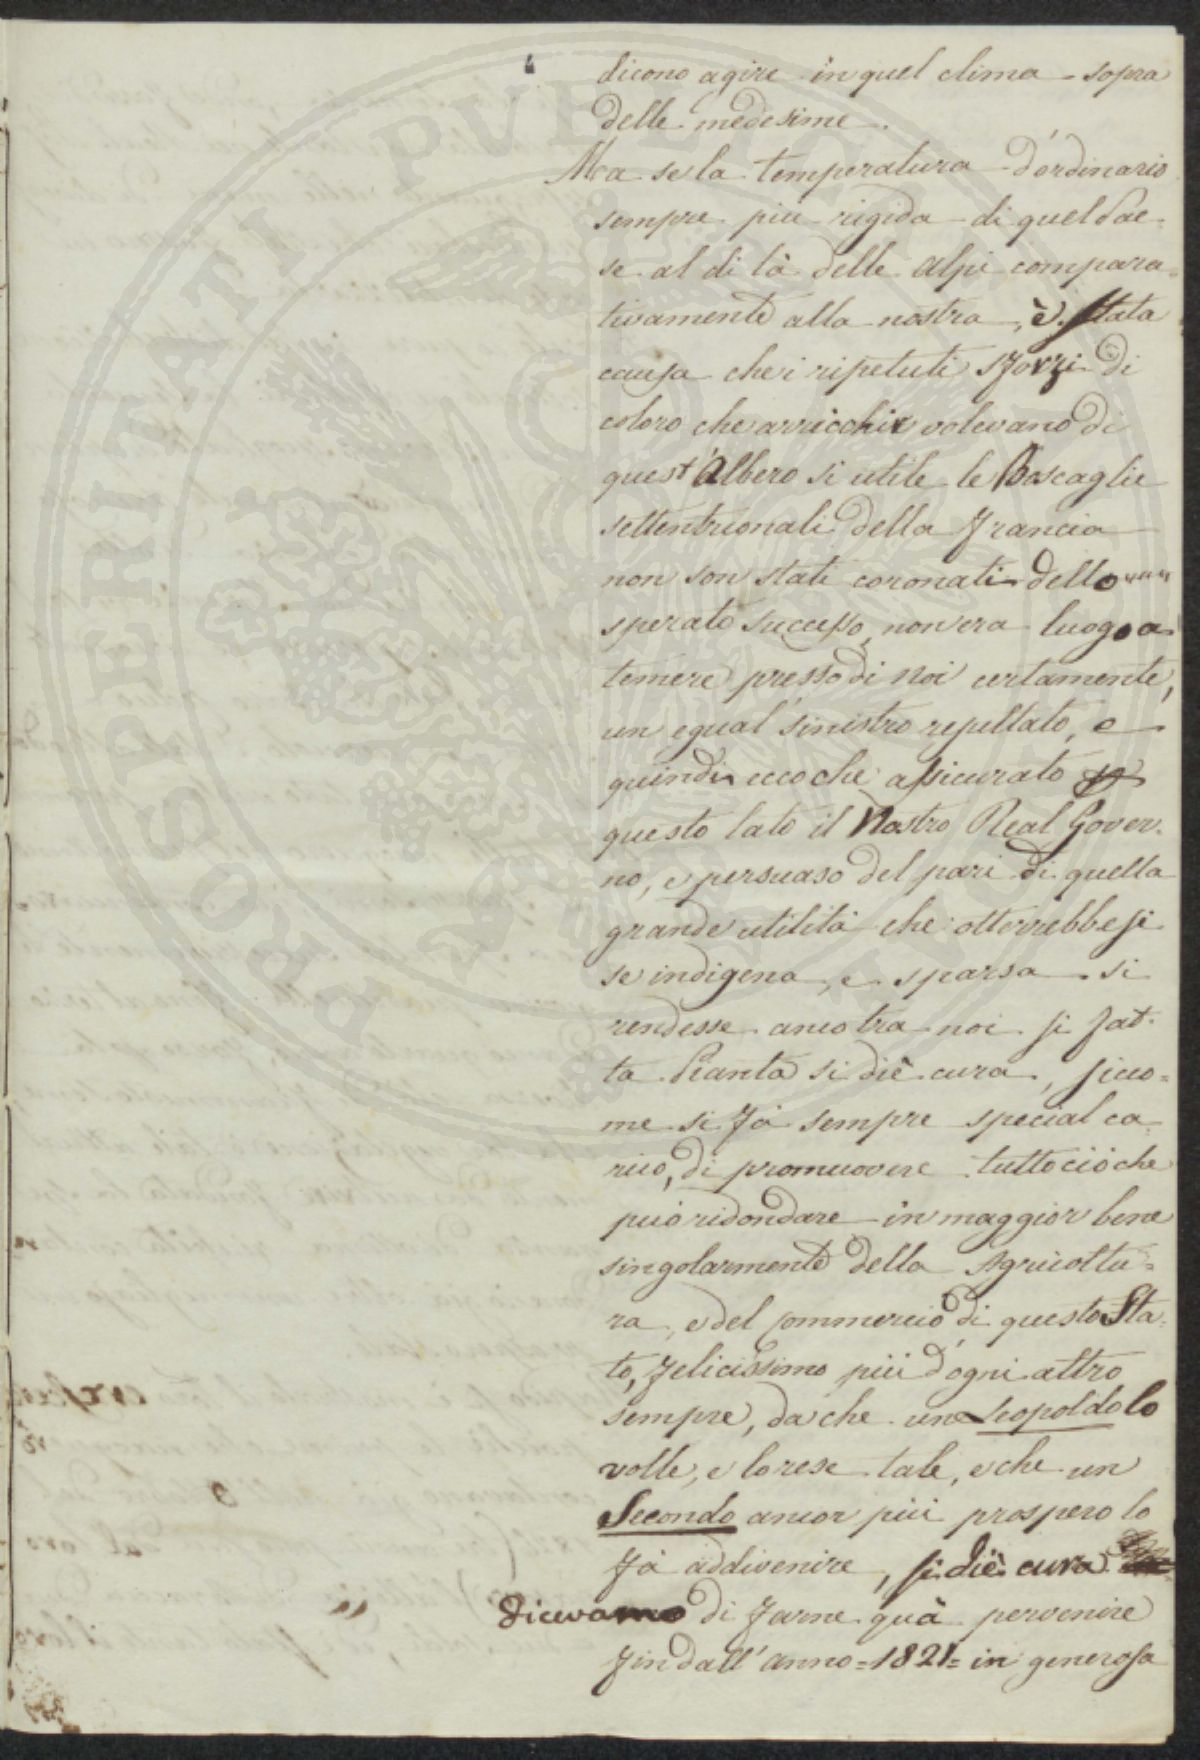 dicono agire in quel clima sopra
delle medesime.
Ma se la temperatura d'ordinario
sempre più rigida di quel Pae=
se al di là delle Alpi compara=
tivamente alla nostra, è stata
causa che i ripetuti sforzi di
coloro che arricchir volevano di
quest'Albero sì utile le Boscaglie
settentrionali della Francia
non son stati coronati dello
sperato successo, non era luogo a
temere presso di noi certamente,
un egual sinistro resultato, e
quindi ecco che assicurato
questo lato il Nostro Real Gover=
no, e persuaso del pari di quella
grande utilità che otterrebbesi
se indigena, e sparsa si
rendesse anco tra noi sì fat=
ta Pianta si diè cura, sicco=
me si fà sempre special ca=
rico, di promuovere tuttociò che
può ridondare in maggior bene
singolarmente della Agricoltu=
ra, e del Commercio di questo Sta=
to, felicissimo più d'ogni altro
sempre, da che un Leopoldo lo
volle, e lo rese tale, e che un
Secondo ancor più prospero lo
fà addivenire, si diè cura
dicevamo di farne quà pervenire
fin dall'anno =1821= in generosa
PROSPERITATI PVBLICAE